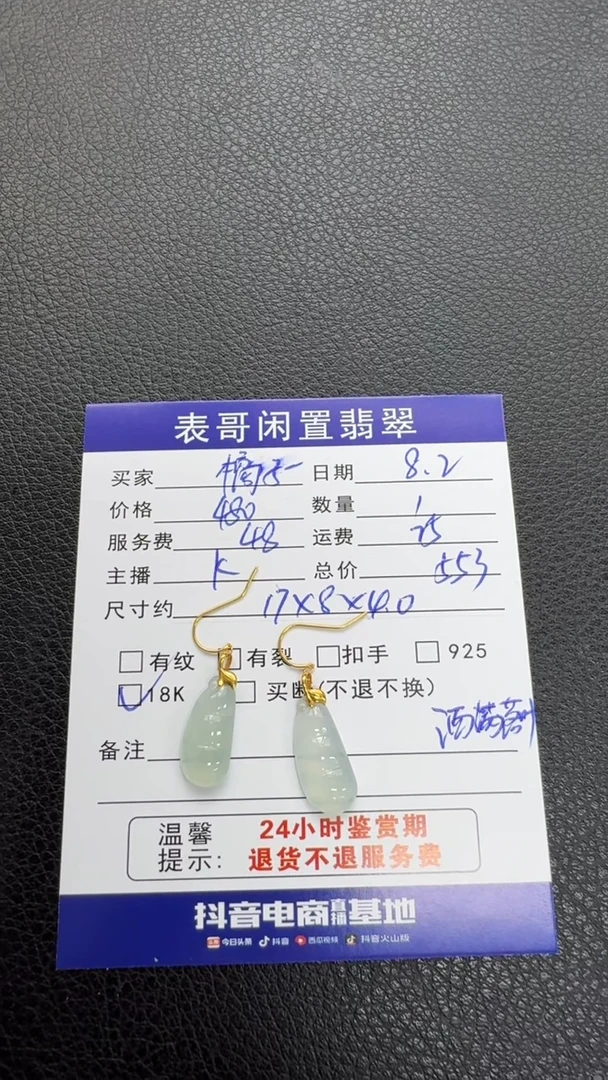 表哥闲置翡翠
买家 日期 8.2
价格 480 数量 1
服务费 48 运费 25
主播 K 总价 553
尺寸约 17×8×4.0
□有纹 □有裂 □扣手 □925
☑18K □买断(不退不换)
备注
温馨提示: 24小时鉴赏期
退货不退服务费
抖音电商直播基地
今日头条 抖音 西瓜视频 抖音火山版